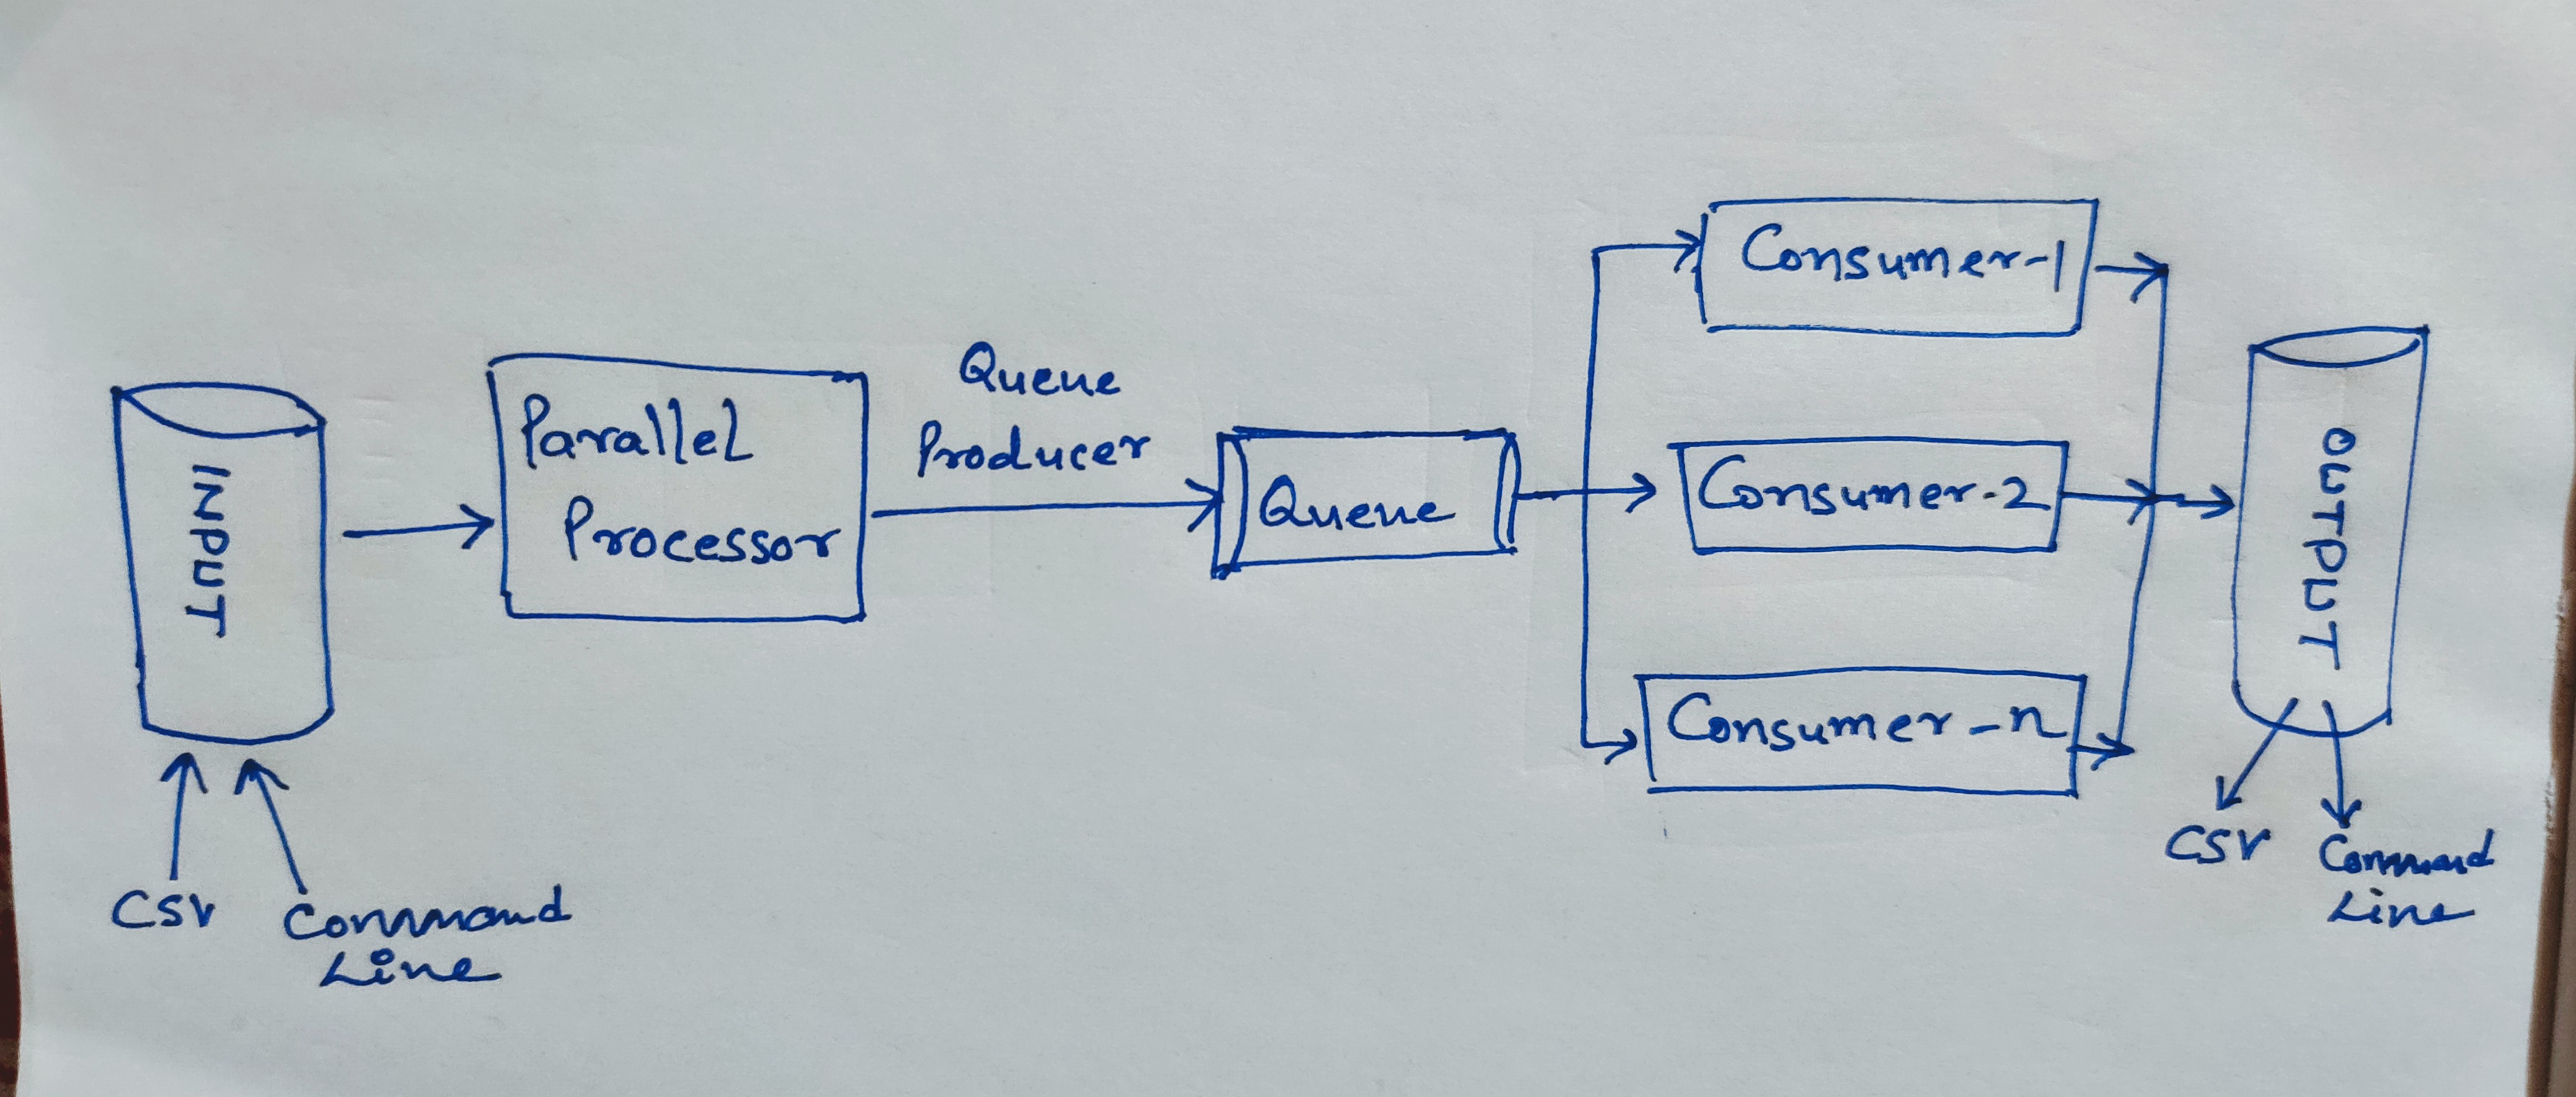 INPUT
CSV
Command
Line
Parallel
Processor
Queue
Producer
Queue
Consumer-1
Consumer-2
Consumer-n
OUTPUT
CSV
Command
Line